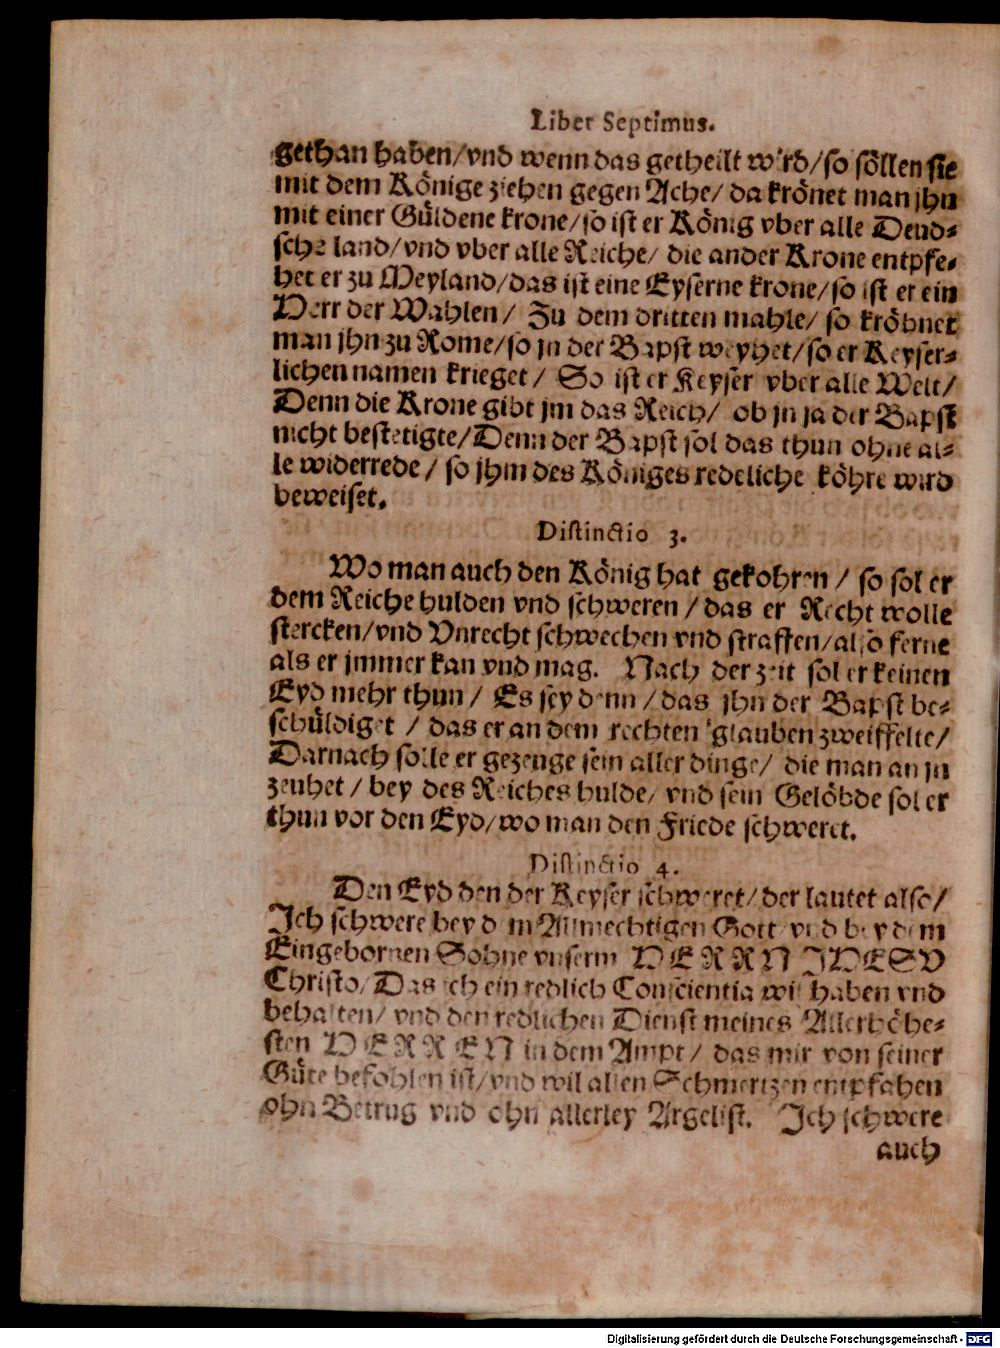 Liber Septimus.
gethan haben/vnd wenn das getheilt wird/so söllen sie
mit dem Könige ziehen gegen Ache/ da krönet man jhn
mit einer Güldene krone/so ist er König vber alle Deud⸗
sche land/vnd vber alle Reiche/ die ander Krone entpfe⸗
het er zu Meyland/das ist eine Eyserne krone/so ist er ein
Herr der Wahlen/ Zu dem dritten mahle/ so kröhnet
man jhn zu Rome/so jn der Bapst weyhet/so er Keyser⸗
lichen namen krieget/ So ist er Keyser vber alle Welt/
Denn die Krone gibt jm das Reich/ ob jn ja der Bapst
nicht bestetigte/Denn der Bapst sol das thun ohne al⸗
le widerrede/ so jhm des Königes redeliche köhre wird
beweiset.
Distinctio 3.
Wo man auch den König hat gekohren/ so sol er
dem Reiche hulden vnd schweren/das er Recht wolle
stercken/vnd Vnrecht schwechen vnd straffen/also ferne
als er jmmer kan vnd mag. Nach der zeit sol er keinen
Eyd mehr thun/ Es sey denn/das jhn der Bapst be⸗
schüldiget / das er an dem rechten glauben zweiffelte/
Darnach solle er gezeuge sein aller dinge/ die man an jn
zeuhet/bey des Reiches hulde/ vnd sein Gelöbde sol er
thun vor den Eyd/wo man den Friede schweret.
Distinctio 4.
Den Eyd den der Keyser schweret/der lautet also/
Ich schwere bey dem Allmechtigen Gott vnd bey dem
Eingebornen Sohne vnserm HERRN JHESV
Christo/Das ich ein redlich Conscientia wil haben vnd
behalten/ vnd den redlichen Dienst meines Allerhöhe⸗
sten HERREN in dem Ampt/ das mir von seiner
Güte befohlen ist/vnd wil allen Schmertzen entpfahen
ohn Betrug vnd ohn allerley Argelist. Ich schwere
auch
Digitalisierung gefördert durch die Deutsche Forschungsgemeinschaft - DFG